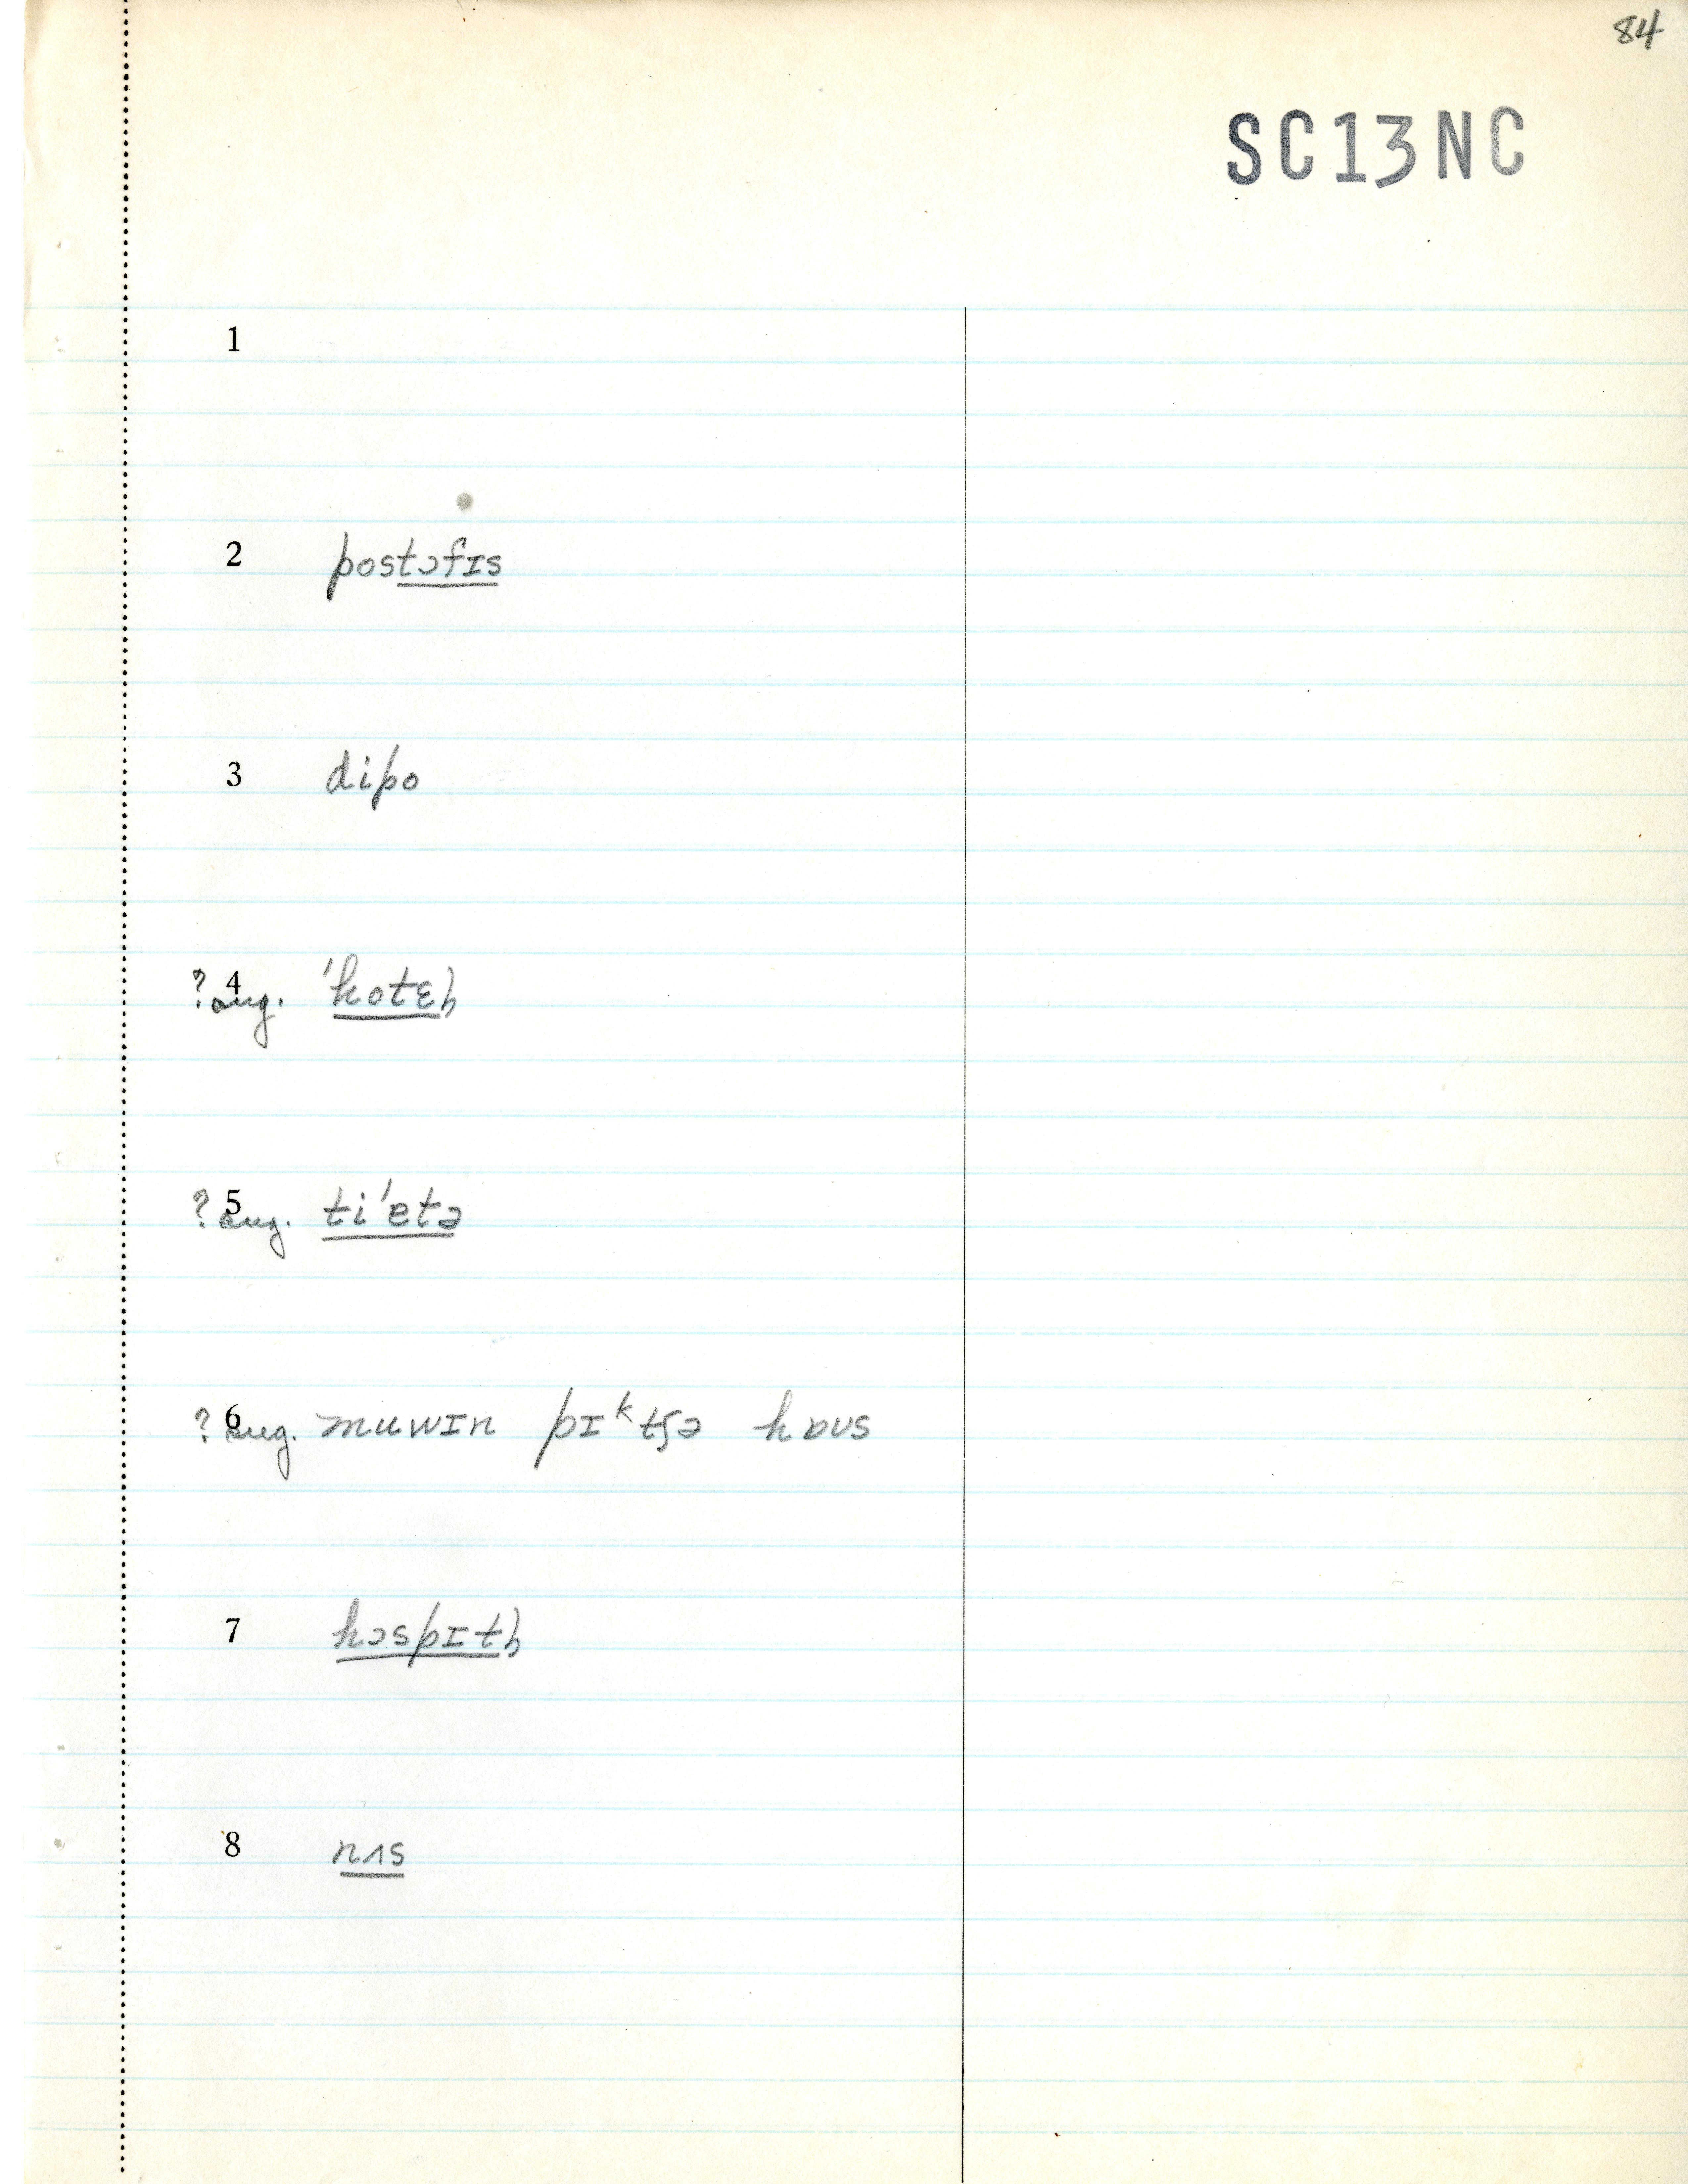 84
SC13NC
1
2 postɔfɪs
3 dipo
? sug. 4 ˈhotɛl̩
? sug. 5 tiˈetə
? sug. 6 muwɪn pɪᵏtʃə hɒʊs
7 hɔspɪtl̩
8 nʌs